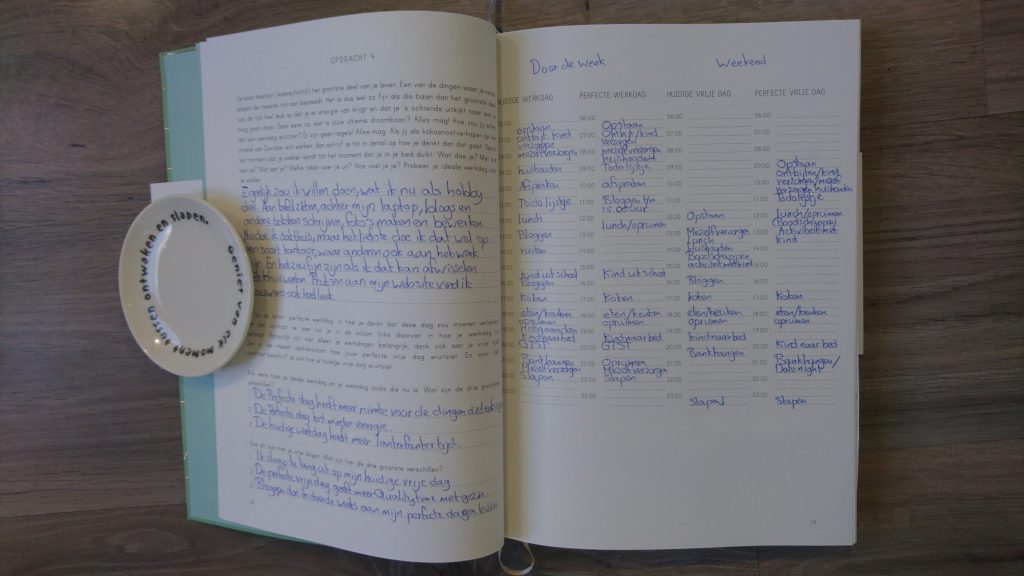 OPDRACHT 4
Je baan beslaat (waarschijnlijk) het grootste deel van je leven. Een van de dingen waar je naast
slapen de meeste tijd aan besteedt. Het is dus wel zo fijn als die baan dan het grootste deel
van de tijd heel leuk is, dat je er energie van krijgt en dat je 's ochtends uitkijkt naar wat je
mag gaan doen. Denk eens na: wat is jouw ultieme droombaan? Alles mag! Hoe zou jij willen
dat een werkdag eruitziet? Er zijn geen regels! Alles mag. Als jij als kokosnootverkoper op het
strand van Zanzibar wilt werken, dan schrijf je tot in detail op hoe je denkt dat dat gaat. Vanaf
het moment dat je wakker wordt tot het moment dat je in je bed duikt. Wat doe je? Met wie
ben je? Wat eet je? Welke taken voer je uit? Hoe voel je je? Probeer je ideale werkdag voor
te stellen.
Eigenlijk zou ik willen doen, wat ik nu als hobby
doe. Aan bed zitten, achter mijn laptop, blogs en
andere teksten schrijven, foto's maken en bewerken.
doe ik dat thuis, maar het liefste doe ik dat wel op
een soort kantoor, waar anderen ook aan het werk
En het zou fijn zijn als ik dat kan afwisselen
Praten aan mijn website vind ik
ook heel leuk.
perfecte werkdag in hoe je denkt dat deze dag zou moeten verlopen
hoe jouw perfecte vrije dag eruitziet. En voor het
contrast beschrijf je ook hoe je huidige vrije dag eruitziet.
Kijk eens naar je ideale werkdag en je werkdag zoals die nu is. Wat zijn de drie grootste
verschillen?
1 De Perfecte dag heeft meer ruimte voor de dingen die ik
2 De Perfecte dag kost minder energie.
3 De huidige werkdag heeft meer lanterfantertijd.
Doe dit ook met je vrije dagen. Wat zijn hier de drie grootste verschillen?
1 Ik slaap te lang uit op mijn huidige vrije dag
2 De perfecte vrije dag geeft meer Qualitytime met gezin.
3 Bloggen doe ik doordeweeks aan mijn perfecte dagen
18
Geniet van elk moment tussen ontwaken en slapen.
Door de week
Weekend
HUIDIGE WERKDAG
06:00
07:00
opstaan
ontbijt, kind
verzorgen
mezelf verzorgen
huishouden
Afspraken
To do lijstje
lunch
Bloggen
rusten
Kind uit school
Bloggen
Koken
eten/keuken
opruimen
Kind naar bed
GTST
Bankhangen
Mezelf verzorgen
Slapen
PERFECTE WERKDAG
06:00 Opstaan
07:00 Ontbijt/kind
verzorgen
08:00 mezelf verzorgen
huishouden
09:00 To do lijstje
10:00 afspraken
11:00 Bloggen
12:00
13:00 lunch/opruimen
14:00
15:00
16:00 Kind uit school
17:00 Koken
18:00 eten/keuken
opruimen
19:00 Kind naar bed
20:00 GTST
21:00 Opruimen
Mezelf verzorgen
22:00 Slapen
23:00
HUIDIGE VRIJE DAG
06:00
07:00
08:00
09:00
10:00
11:00
12:00 Opstaan
13:00 Mezelf verzorgen
Lunch
14:00 huishouden
15:00 Boodschappen
activiteit met kind
16:00 Bloggen
17:00 koken
18:00 eten/keuken
opruimen
19:00 kind naar bed
20:00 Bankhangen
21:00
22:00
23:00 Slapen
PERFECTE VRIJE DAG
06:00
07:00
08:00
09:00 Opstaan
10:00 ontbijten/kind
verzorgen/mezelf
verzorgen huishouden
11:00 To do lijstje
12:00 Lunch/opruimen
Boodschappen/
13:00 Activiteit met
kind
14:00
15:00
16:00
17:00 Koken
18:00 eten/keuken
opruimen
19:00
20:00 Kind naar bed
21:00 Bankhangen/
Date night
22:00
23:00 Slapen
19